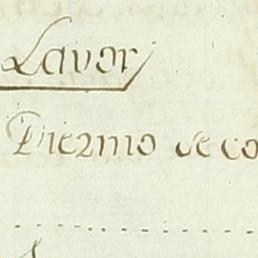 Lavor
Diezmo de co